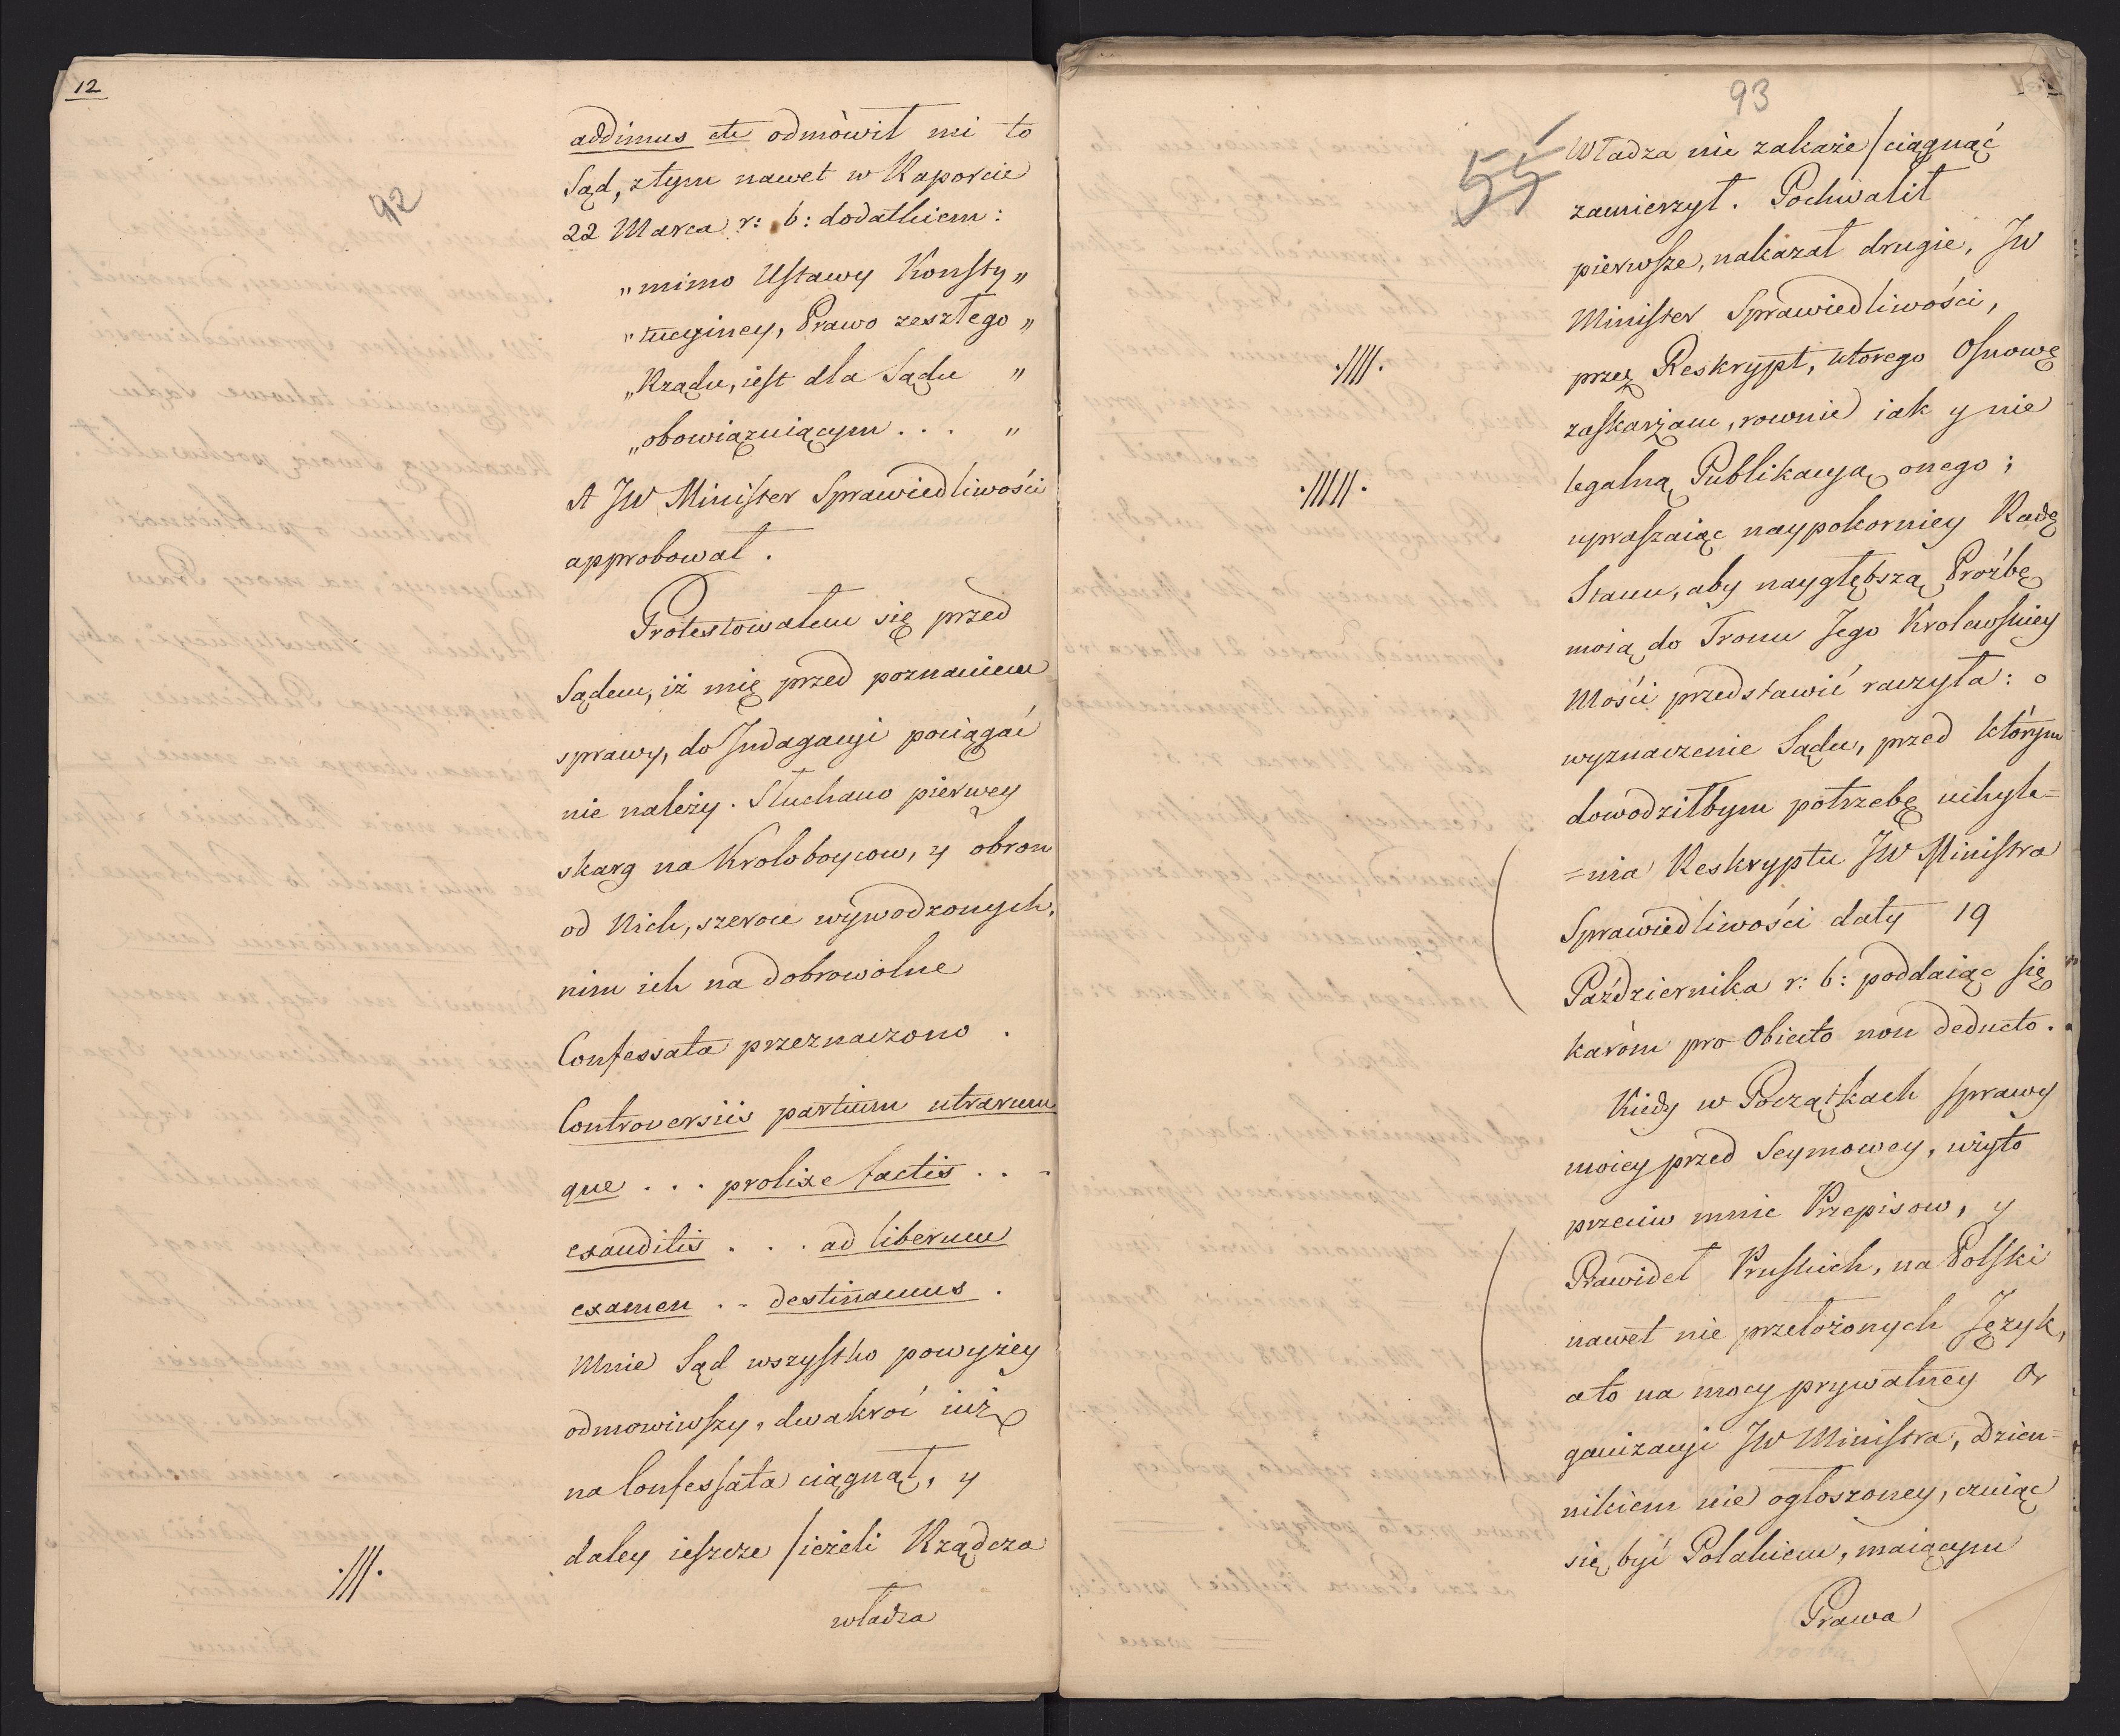 12
92
addimus etc odmòwił mi to
Sąd, z tym nawet w Raporcie
22 Marca r: b: dodatkiem:
„mimo Ustawy Konsty„
„tucyiney, Prawo zeszłego „
„Rządu, iest dla Sądu „
„obowiązuiącym . . . „
A JW Minister Sprawiedliwości
approbował .
Protestowałem się przed
Sądem, iż mię przed poznaniem
sprawy, do Indagacyi pociągać
nie należy. Słuchano pierwey
skarg na Kroloboycow, y obron
od Nich, szeroce wywodzonych,
nim ich na dobrowolne
Confessata przeznaczono .
Controversiis partium utrarum
que . . . prolixe factis . . -
exauditis . . . ad liberum
examen . - destinamus .
Mnie Sąd wszystko powyżey
odmowiwszy, dwakroć iuż
na Confessata ciągnął, y
daley ieszcze /ieżeli Rządcza
./||.
władza
93
55
Władza nie zakaże/ ciągnąć
zamierzył. Pochwalił
pierwsze, nakazał drugie, JW
Minister Sprawiedliwości,
./|||.
przez Reskrypt, ktorego Osnowę
zaskarżam, rownie iak y nie
legalną Publikacyą onego;
./||||.
upraszaiąc naypokorniey Radę
Stanu, aby naygłębszą Prożbę
moią do Tronu Jego Krolewskiey
Mości przedstawić raczyła: o
wyznaczenie Sądu, przed którym
dowodziłbym potrzebę uchyle=
=nia Reskryptu JW Ministra
Sprawiedliwości daty 19
Października r: b: poddaiąc się
karóm pro Obiecto non deducto.
Kiedy w Początkach sprawy
moiey przed Seymowey, użyto
przeciw mnie Przepisow, y
Prawideł Pruskich, na Polski
nawet nie przełożonych Język,
a to na mocy prywatney Or
ganizacyi JW Ministra, Dzien=
nikiem nie ogłoszoney, czuiąc
się być Polakiem, maiącym
Prawa